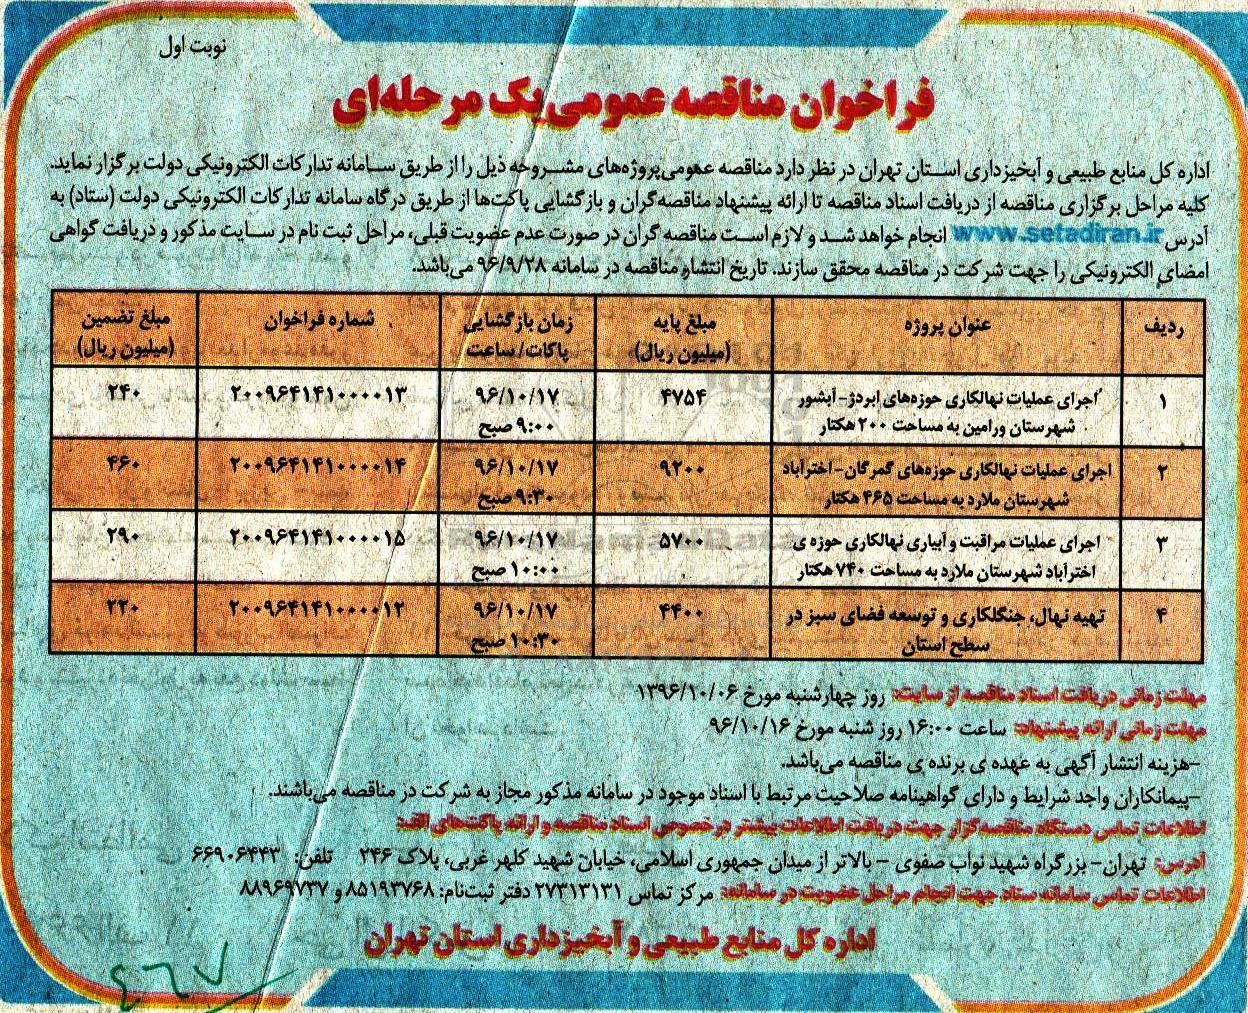 نوبت اول
فراخوان مناقصه عمومی یک مرحله‌ای
اداره کل منابع طبیعی و آبخیزداری استان تهران در نظر دارد مناقصه عمومی پروژه‌های مشروحه ذیل را از طریق سامانه تدارکات الکترونیکی دولت برگزار نماید.
کلیه مراحل برگزاری مناقصه از دریافت اسناد مناقصه تا ارائه پیشنهاد مناقصه‌گران و بازگشایی پاکت‌ها از طریق درگاه سامانه تدارکات الکترونیکی دولت (ستاد) به
آدرس www.setadiran.ir انجام خواهد شد و لازم است مناقصه گران در صورت عدم عضویت قبلی، مراحل ثبت نام در سایت مذکور و دریافت گواهی
امضای الکترونیکی را جهت شرکت در مناقصه محقق سازند. تاریخ انتشار مناقصه در سامانه ۹۶/۹/۲۸ می‌باشد.
ردیف عنوان پروژه مبلغ پایه (میلیون ریال) زمان بازگشایی پاکات/ ساعت شماره فراخوان مبلغ تضمین (میلیون ریال)
۱ اجرای عملیات نهالکاری حوزه‌های ایردژ- آبشور ۴۷۵۴ ۹۶/۱۰/۱۷ ۲۰۰۹۶۴۱۴۱۰۰۰۰۱۳ ۲۴۰
شهرستان ورامین به مساحت ۲۰۰ هکتار ۹:۰۰ صبح
۲ اجرای عملیات نهالکاری حوزه‌های گمرگان- اخترآباد ۹۲۰۰ ۹۶/۱۰/۱۷ ۲۰۰۹۶۴۱۴۱۰۰۰۰۱۴ ۴۶۰
شهرستان ملارد به مساحت ۴۶۵ هکتار ۹:۳۰ صبح
۳ اجرای عملیات مراقبت و آبیاری نهالکاری حوزه ی ۵۷۰۰ ۹۶/۱۰/۱۷ ۲۰۰۹۶۴۱۴۱۰۰۰۰۱۵ ۲۹۰
اخترآباد شهرستان ملارد به مساحت ۷۴۰ هکتار ۱۰:۰۰ صبح
۴ تهیه نهال، جنگلکاری و توسعه فضای سبز در ۴۴۰۰ ۹۶/۱۰/۱۷ ۲۰۰۹۶۴۱۴۱۰۰۰۰۱۲ ۲۲۰
سطح استان ۱۰:۳۰ صبح
مهلت زمانی دریافت اسناد مناقصه از سایت: روز چهارشنبه مورخ ۱۳۹۶/۱۰/۰۶
مهلت زمانی ارائه پیشنهاد: ساعت ۱۶:۰۰ روز شنبه مورخ ۹۶/۱۰/۱۶
-هزینه انتشار آگهی به عهده ی برنده ی مناقصه می‌باشد.
-پیمانکاران واجد شرایط و دارای گواهینامه صلاحیت مرتبط با اسناد موجود در سامانه مذکور مجاز به شرکت در مناقصه می‌باشند.
اطلاعات تماس دستگاه مناقصه‌گزار جهت دریافت اطلاعات بیشتر در خصوص اسناد مناقصه و ارائه پاکت‌های الف:
آدرس: تهران- بزرگراه شهید نواب صفوی - بالاتر از میدان جمهوری اسلامی، خیابان شهید کلهر غربی، پلاک ۲۴۶ تلفن: ۶۶۹۰۶۴۴۳
اطلاعات تماس سامانه ستاد جهت انجام مراحل عضویت در سامانه: مرکز تماس ۲۷۳۱۳۱۳۱ دفتر ثبت‌نام: ۸۵۱۹۳۷۶۸ و ۸۸۹۶۹۷۳۷
اداره کل منابع طبیعی و آبخیزداری استان تهران
۴۶۷